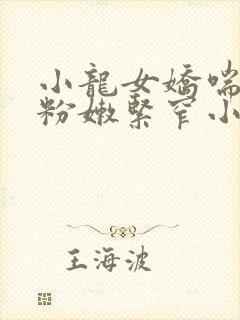 小龍女嬌喘
粉嫩緊窄小
王海波